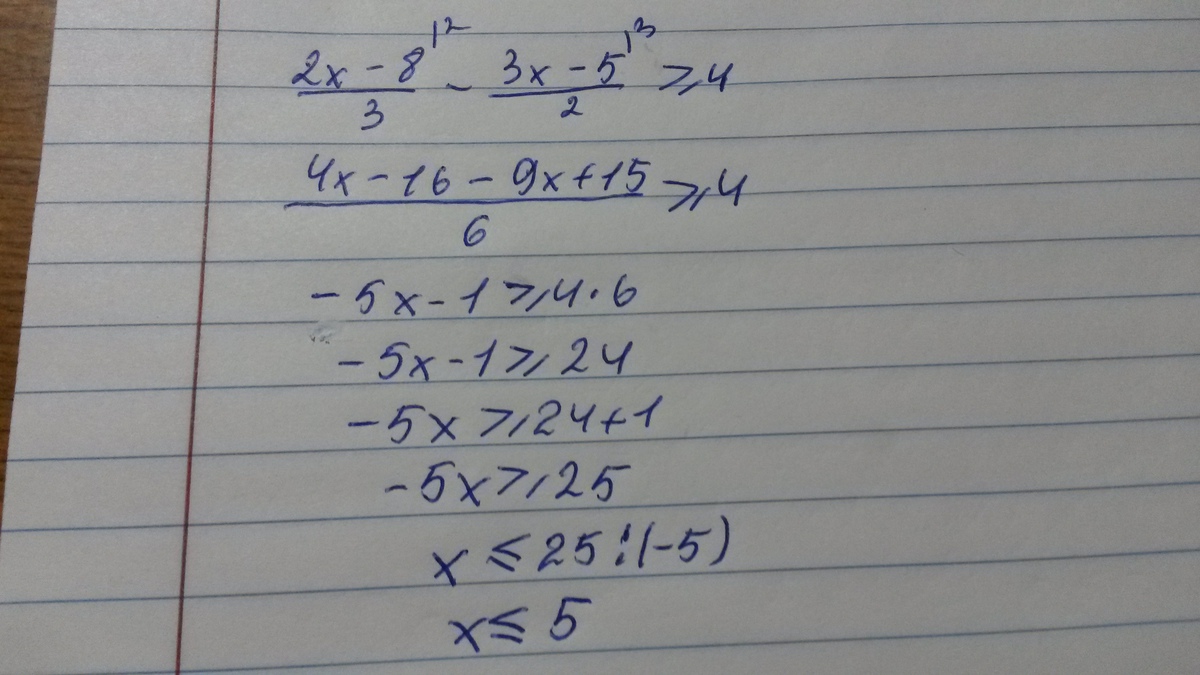 (2x - 8)/3 |2 - (3x - 5)/2 |3 ⩾ 4
(4x - 16 - 9x + 15)/6 ⩾ 4
- 5x - 1 ⩾ 4 · 6
- 5x - 1 ⩾ 24
- 5x ⩾ 24 + 1
- 5x ⩾ 25
x ⩽ 25 : (-5)
x ⩽ 5